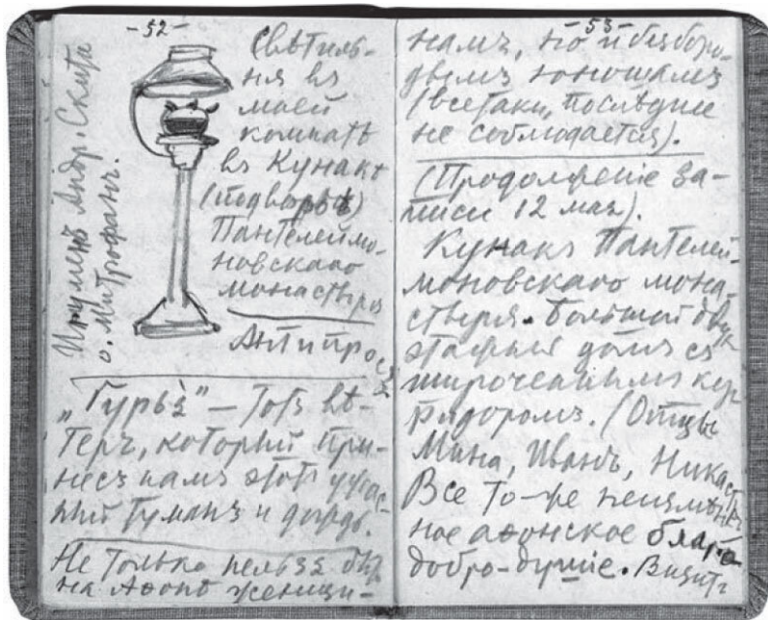 -52-
Свѣтиль-
ня въ
моей
комнатѣ
въ Кунакѣ
(подворьѣ)
Пантелеймо-
новскаго
монастыря
Игуменъ Андр. Скита
о. Митрофанъ.
Антипросъ
„Гурбѣ” — тотъ вѣ-
теръ, который при-
несъ намъ этотъ ужас-
ный туманъ и дождь.
Не только нельзя быть
на Аѳонѣ женщи-
-53-
намъ, но и безборо-
дымъ юношамъ
(всетаки, послѣднее
не соблюдается).
(Продолженіе за-
писи 12 мая).
Кунакъ Пантелей-
моновскаго мона-
стыря. Большой двух-
этажный домъ съ
широчайшимъ кор-
ридоромъ. (Отцы
Мина, Иванъ,
Все то-же неизмѣн-
ное аѳонское благо
добро-душіе. Визитъ